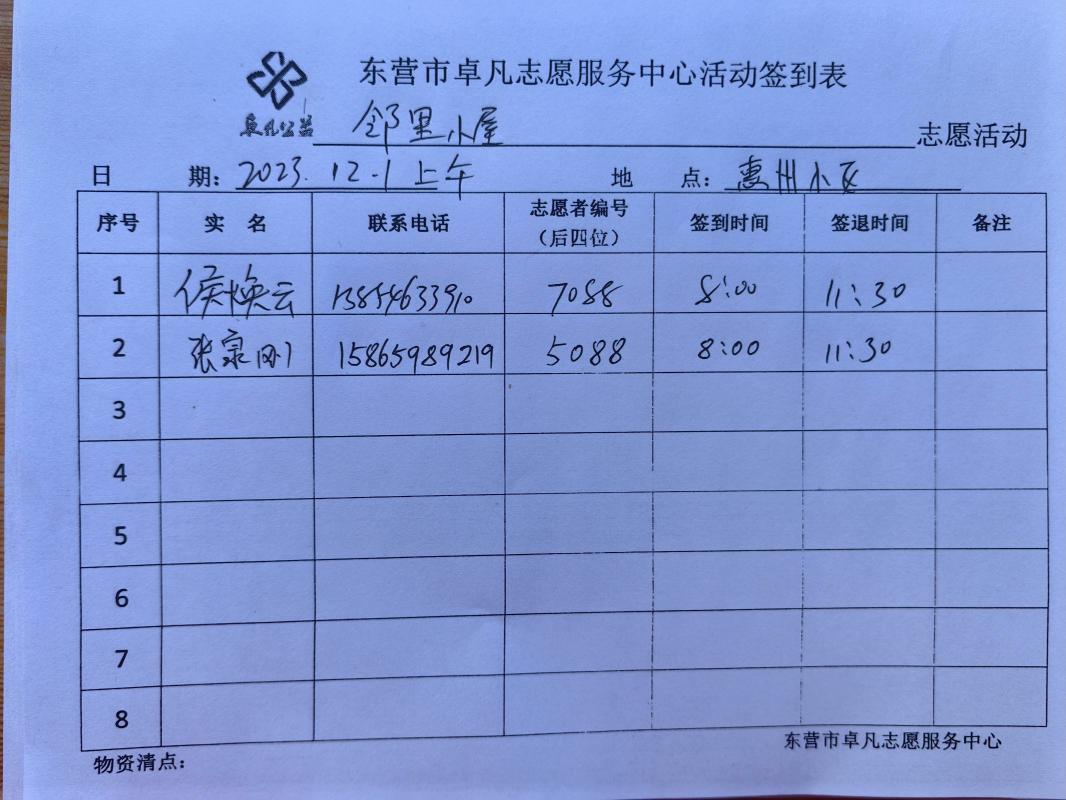 东营市卓凡志愿服务中心活动签到表
卓凡公益 邻里小屋 志愿活动
日 期：2023.12.1上午 地 点：惠州小区
序号 实 名 联系电话 志愿者编号（后四位） 签到时间 签退时间 备注
1 侯焕云 13854633910 7088 8:00 11:30
2 张泉刚 15865989219 5088 8:00 11:30
3
4
5
6
7
8
东营市卓凡志愿服务中心
物资清点：